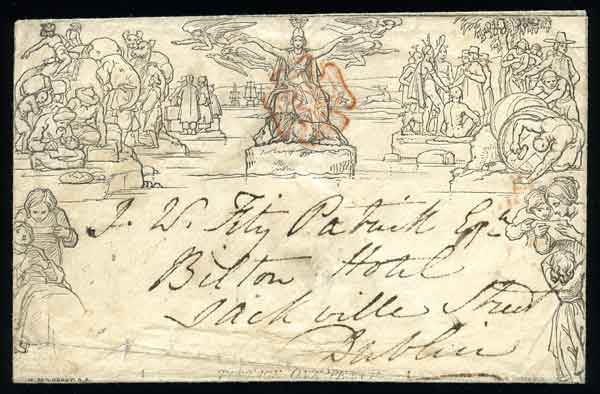 J. W. Fitz Patrick Esqr
Bilton Hotel
Sackville Street
Dublin
W. MULREADY. R.A.